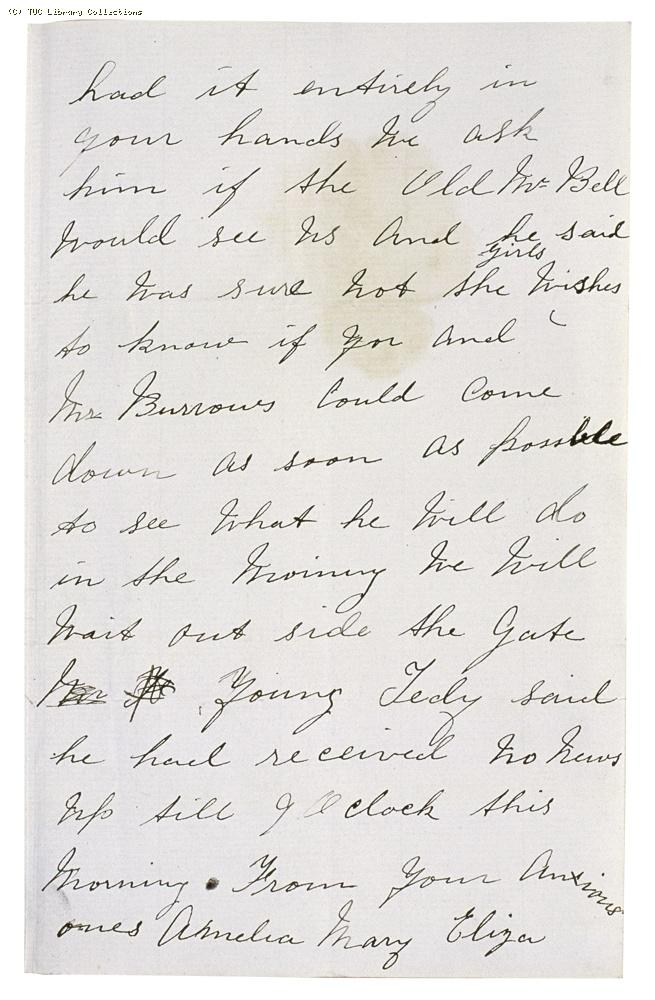 (C) TUC Library Collections
had it entirely in
your hands We ask
him if the Old Mr Bell
Would see Us And he said
he Was sure Not the girls Wishes
to know if you And
Mr Burrows Could Come
down As soon As possible
to see What he Will do
in the Morning We Will
Wait out side the Gate
Young Tedy said
he had received No News
Up till 9 O clock this
Morning. From Your Anxious
ones Amelia Mary Eliza